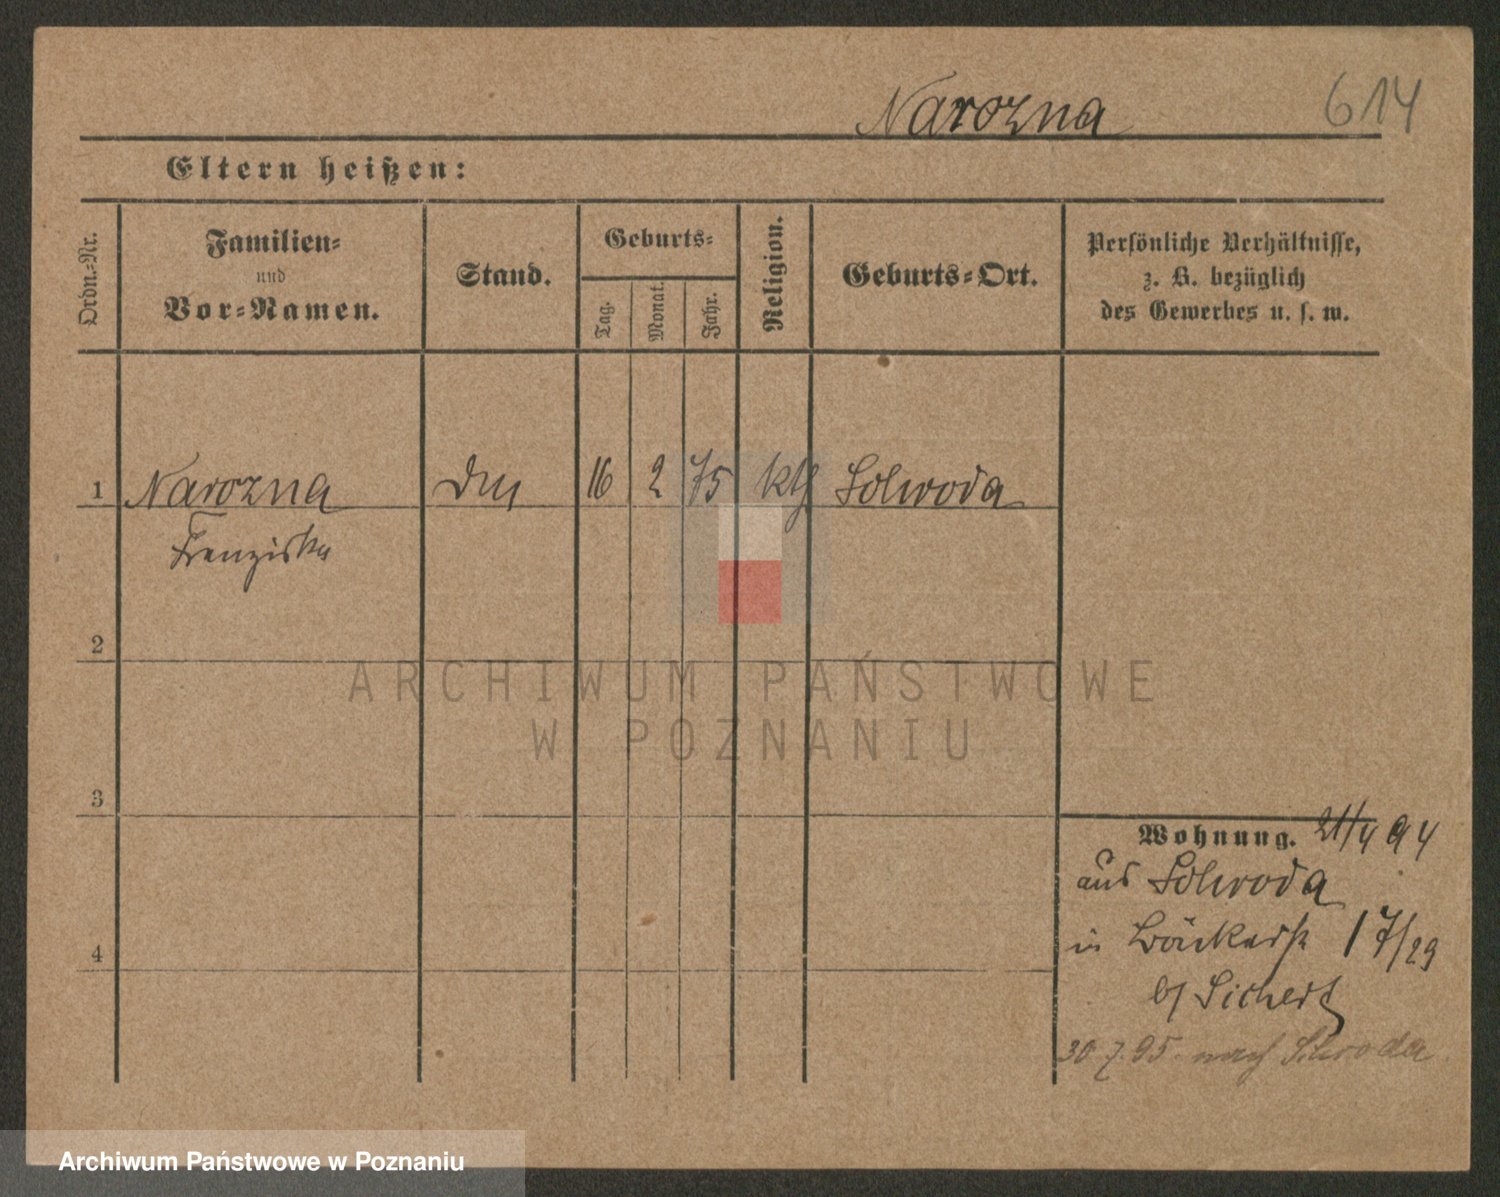 Narozna 614
Eltern heißen:
Ordn.=Nr.
Familien=
und
Vor=Namen.
Stand.
Geburts=
Tag.
Monat.
Jahr.
Religion.
Geburts=Ort.
Persönliche Verhältnisse,
z. B. bezüglich
des Gewerbes u. s. w.
1 Narozna 16 2 75 kth Schroda
Franziska
2
3
4
Wohnung. 21/4 94
aus Schroda
in Bäckerst 17/23
b/ Sichert
30 7. 95. nach Schroda
ARCHIWUM PAŃSTWOWE
W POZNANIU
Archiwum Państwowe w Poznaniu